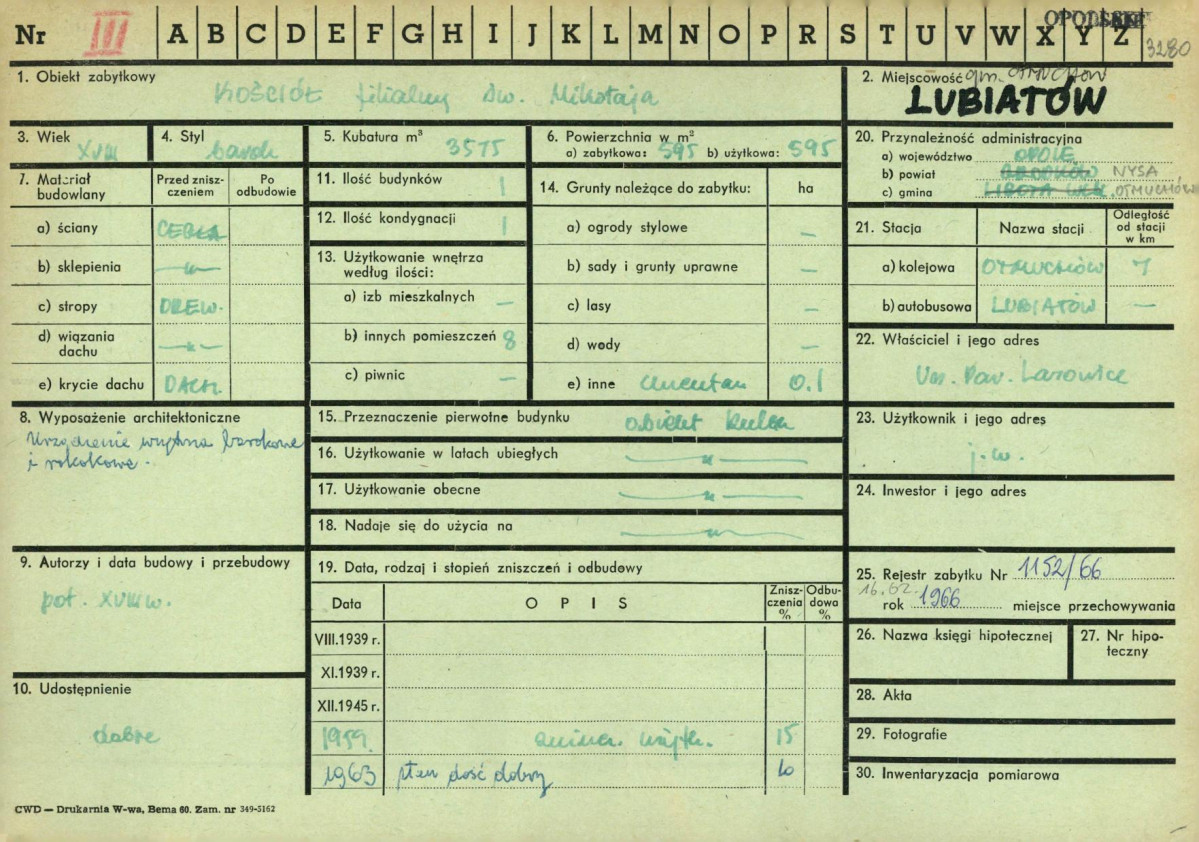 Nr III A B C D E F G H I J K L M N O P R S T U V W X Y Z
3280
1. Obiekt zabytkowy
Kościół filialny Św. Mikołaja
2. Miejscowość gm. OTMUCHÓW
LUBIATÓW
3. Wiek
XVIII
4. Styl
barok
5. Kubatura m³
3575
6. Powierzchnia w m²
a) zabytkowa: 595 b) użytkowa: 595
20. Przynależność administracyjna
a) województwo OPOLE
b) powiat GRODKÓW NYSA
c) gmina OTMUCHÓW
7. Materiał budowlany
Przed zniszczeniem
Po odbudowie
a) ściany CEGŁA
b) sklepienia -"-
c) stropy DREW.
d) wiązania dachu -"-
e) krycie dachu DACH.
11. Ilość budynków 1
12. Ilość kondygnacji 1
13. Użytkowanie wnętrza według ilości:
a) izb mieszkalnych —
b) innych pomieszczeń 8
c) piwnic —
14. Grunty należące do zabytku: ha
a) ogrody stylowe —
b) sady i grunty uprawne —
c) lasy —
d) wody —
e) inne cmentarz 0.1
21. Stacja
Nazwa stacji
Odległość od stacji w km
a) kolejowa OTMUCHÓW 7
b) autobusowa LUBIATÓW —
22. Właściciel i jego adres
Par. Lasowice
8. Wyposażenie architektoniczne
Urządzenie wnętrza barokowe
i rokokowe.
15. Przeznaczenie pierwotne budynku obiekt kultu
16. Użytkowanie w latach ubiegłych —"—
17. Użytkowanie obecne —"—
18. Nadaje się do użycia na —"—
23. Użytkownik i jego adres
j.w.
24. Inwestor i jego adres
9. Autorzy i data budowy i przebudowy
poł. XVIII w.
19. Data, rodzaj i stopień zniszczeń i odbudowy
Data
OPIS
Zniszczenia %
Odbudowa %
VIII.1939 r.
XI.1939 r.
XII.1945 r.
1959. 15
1963 stan dość dobry 10
25. Rejestr zabytku Nr 1152/66
16.02. rok 1966 miejsce przechowywania
26. Nazwa księgi hipotecznej
27. Nr hipoteczny
10. Udostępnienie
dobre
28. Akta
29. Fotografie
30. Inwentaryzacja pomiarowa
CWD — Drukarnia W-wa, Bema 60. Zam. nr 349-5162